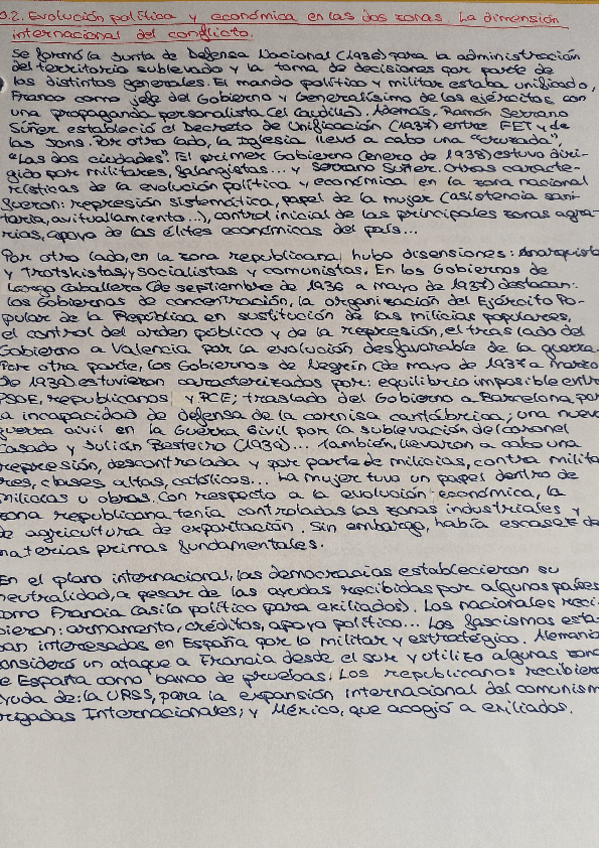 0.2. Evolución política y económica en las dos zonas. La dimensión
internacional del conflicto.
Se formó la Junta de Defensa Nacional (1936) para la administración
del territorio sublevado y la toma de decisiones por parte de
los distintos generales. El mando político y militar estaba unificado,
Franco como jefe del Gobierno y Generalísimo de los ejércitos con
una propaganda personalista (el Caudillo). Además, Ramón Serrano
Súñer estableció el Decreto de Unificación (1937) entre FET y de
las Jons. Por otro lado, la Iglesia llevó a cabo una "cruzada",
"Las dos ciudades". El primer Gobierno (enero de 1938) estuvo diri-
gido por militares, falangistas... y Serrano Súñer. Otras caracte-
rísticas de la evolución política y económica en la zona nacional
fueron: represión sistemática, papel de la mujer (asistencia sani-
taria, avituallamiento...), control inicial de las principales zonas agra-
rias, apoyo de las élites económicas del país...
Por otro lado, en la zona republicana, hubo disensiones: Anarquista
y Trotskistas, y socialistas y comunistas. En los Gobiernos de
Largo Caballero (de septiembre de 1936 a mayo de 1937) destacan:
los Gobiernos de concentración, la organización del Ejército Po-
pular de la República en sustitución de las milicias populares,
el control del orden público y de la represión, el traslado del
Gobierno a Valencia por la evolución desfavorable de la guerra.
Por otra parte, los Gobiernos de Negrín (de mayo de 1937 a marzo
de 1939) estuvieron caracterizados por: equilibrio imposible entre
PSOE, republicanos y PCE; traslado del Gobierno a Barcelona por
a incapacidad de defensa de la cornisa cantábrica; una nueva
guerra civil en la Guerra Civil por la sublevación del coronel
Casado y Julián Besteiro (1939)... También, llevaron a cabo una
represión, descontrolada y por parte de milicias, contra milita-
res, clases altas, católicos... La mujer tuvo un papel dentro de
milicias u obras. Con respecto a la evolución económica, la
zona republicana tenía controladas las zonas industriales y
de agricultura de exportación. Sin embargo, había escasez de
materias primas fundamentales.
En el plano internacional, las democracias establecieron su
neutralidad, a pesar de las ayudas recibidas por algunos países
como Francia (asilo político para exiliados). Los nacionales reci-
bieron: armamento, créditos, apoyo político... Los fascismos esta-
ban interesados en España por lo militar y estratégico. Alemania
consideró un ataque a Francia desde el sur y utilizó algunas zonas
de España como banco de pruebas. Los republicanos recibieron
ayuda de: la URSS, para la expansión internacional del comunismo
rigadas Internacionales; y México, que acogió a exiliados.